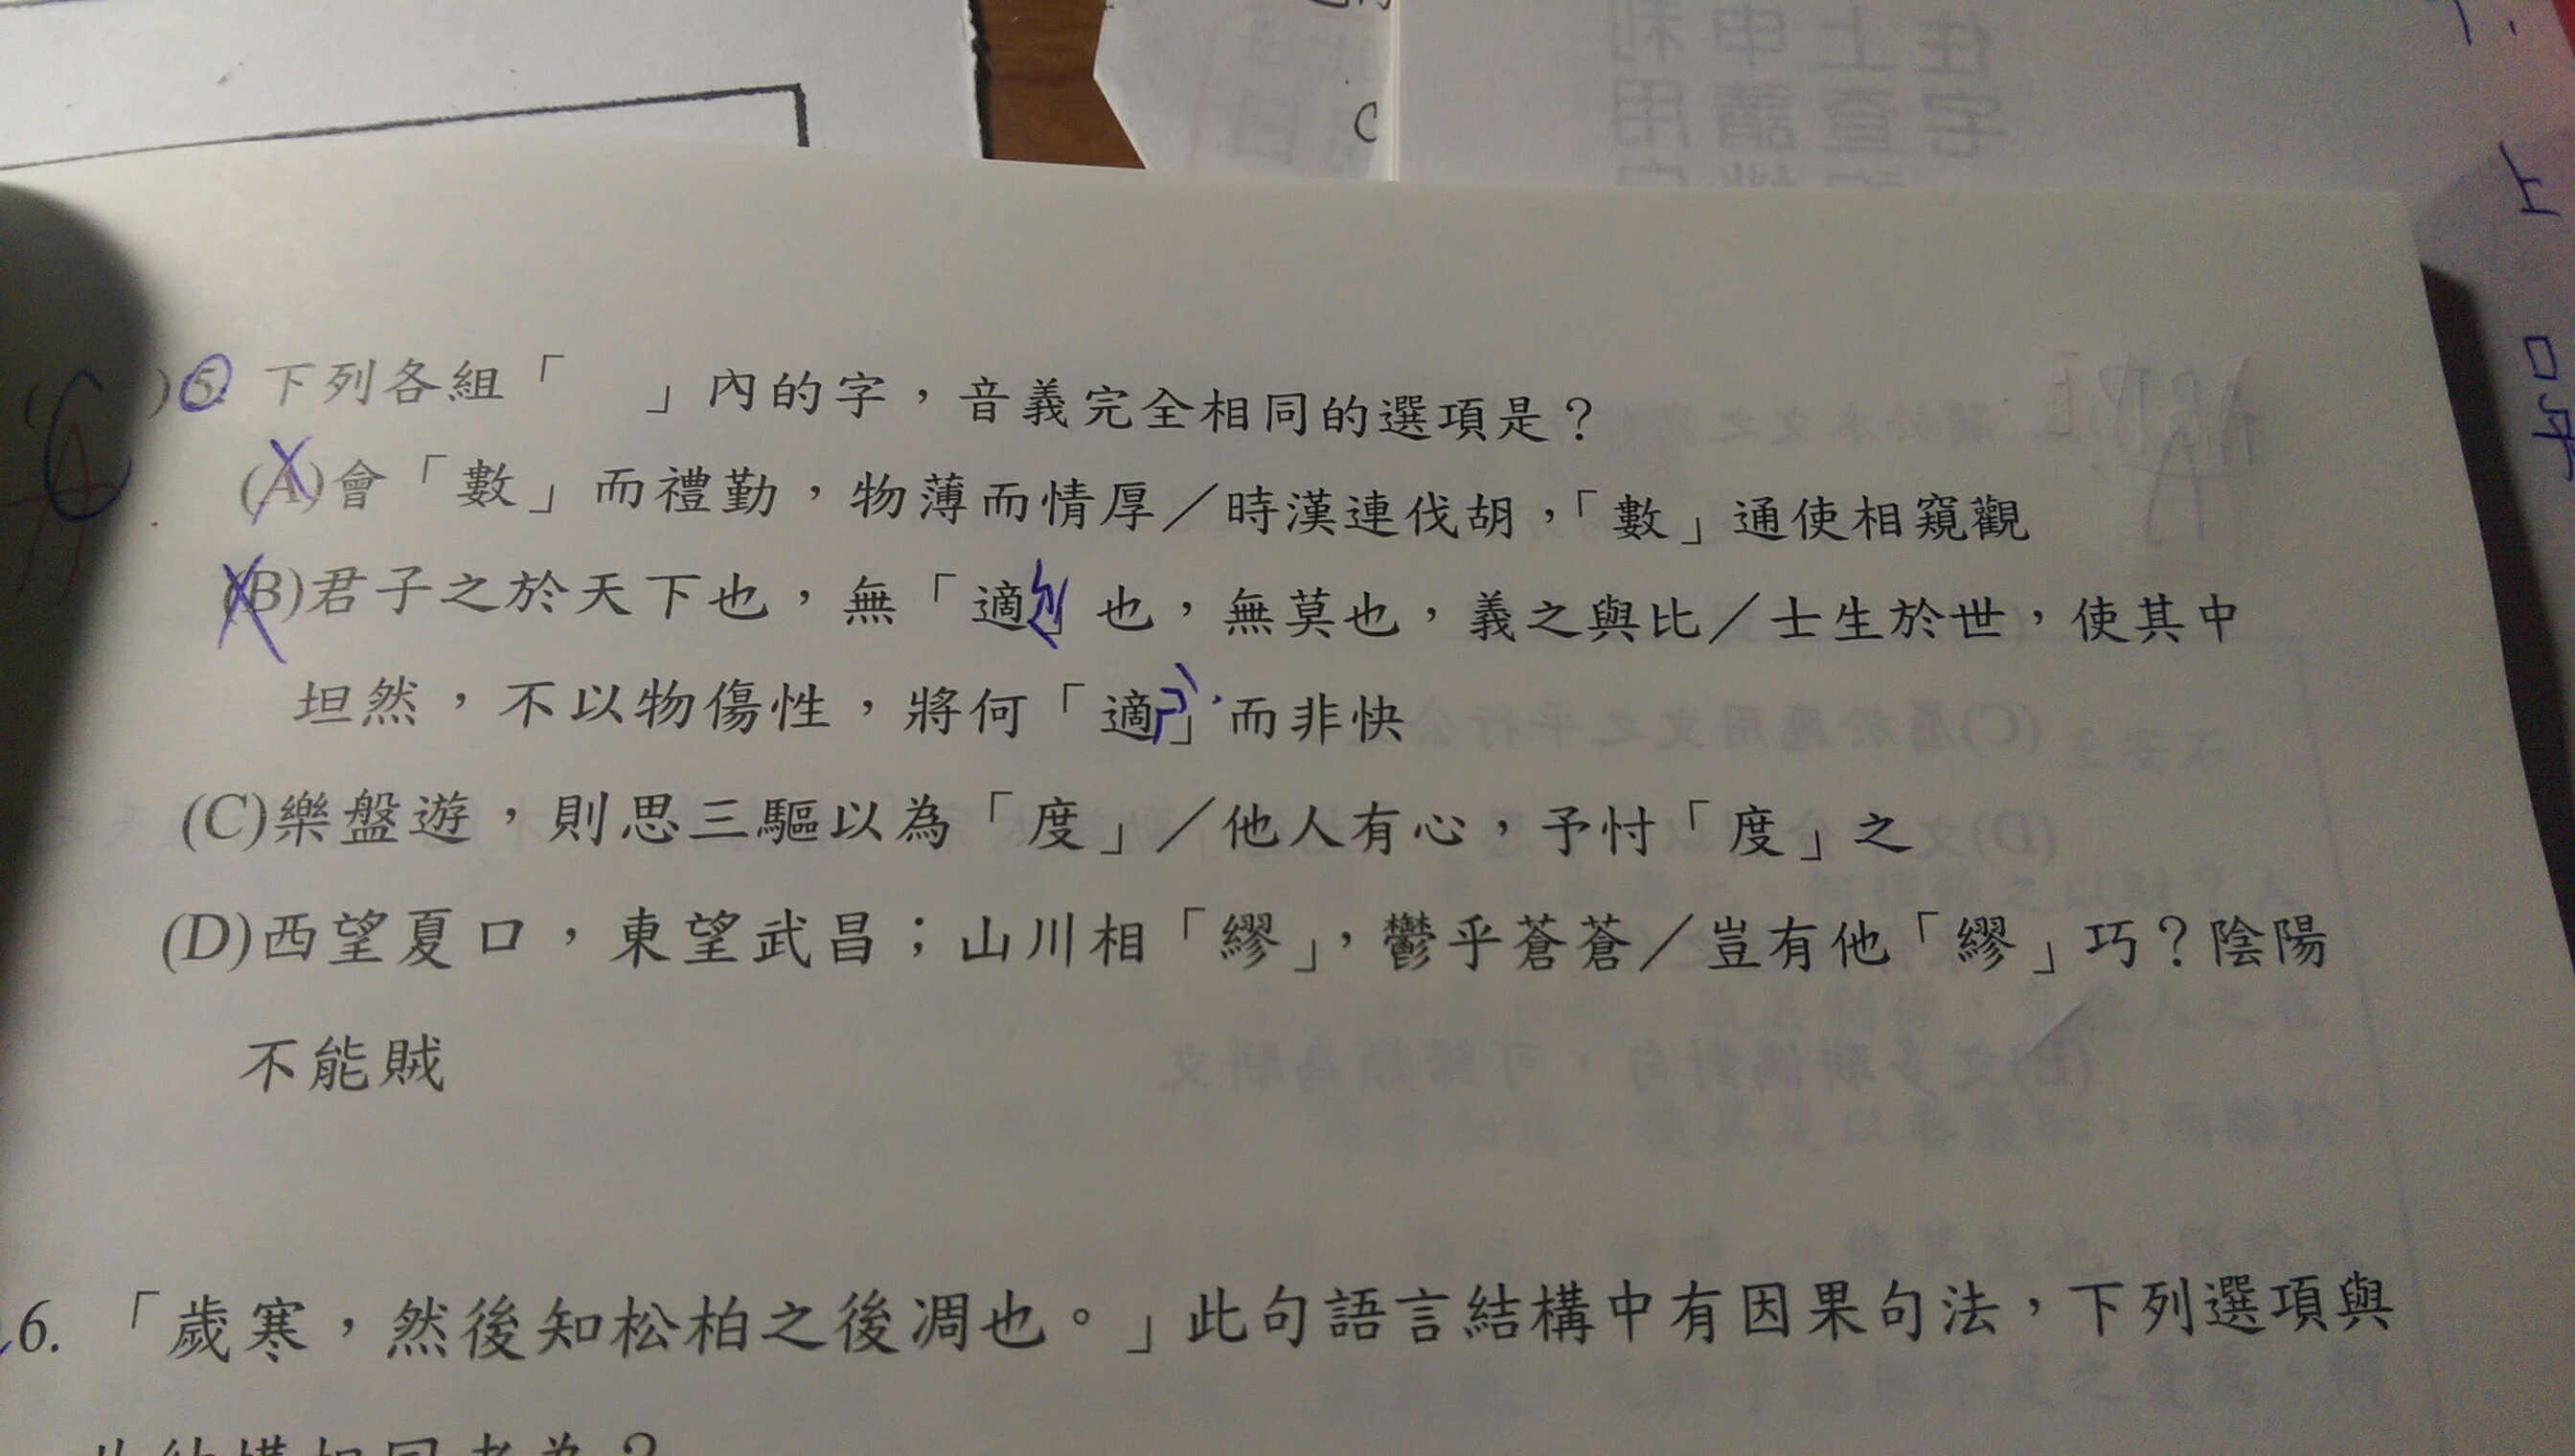 C
上
口
5. 下列各組「　」內的字，音義完全相同的選項是？
(A)會「數」而禮勤，物薄而情厚／時漢連伐胡，「數」通使相窺觀
(B)君子之於天下也，無「適」也，無莫也，義之與比／士生於世，使其中
坦然，不以物傷性，將何「適」而非快
(C)樂盤遊，則思三驅以為「度」／他人有心，予忖「度」之
(D)西望夏口，東望武昌；山川相「繆」，鬱乎蒼蒼／豈有他「繆」巧？陰陽
不能賊
6. 「歲寒，然後知松柏之後凋也。」此句語言結構中有因果句法，下列選項與